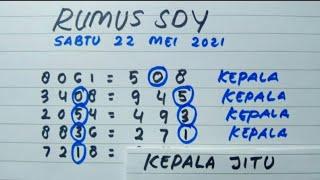 RUMUS SDY
SABTU 22 MEI 2021
8061 = 508 KEPALA
3408 = 945 KEPALA
2054 = 493 KEPALA
8836 = 271 KEPALA
7218 =
KEPALA JITU